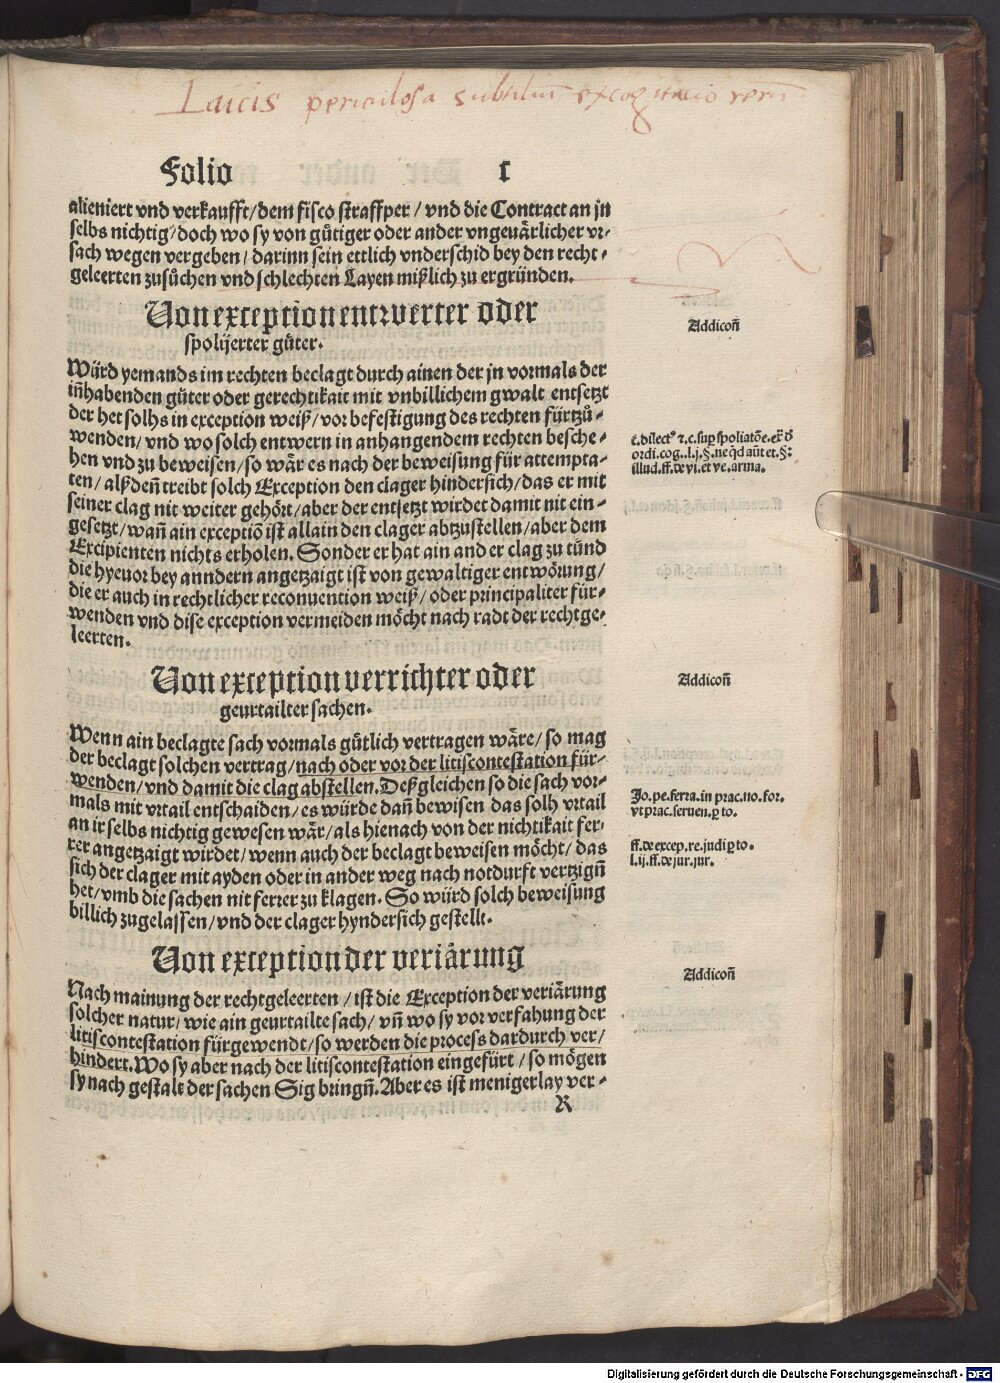 Laicis periculosa subtiliū excogitacio rerū
Folio l
alieniert vnd verkaufft/dem fisco straffper / vnd die Contract an jn
selbs nichtig/doch wo sy von gůtiger oder ander vngeuärlicher vr⸗
sach wegen vergeben/darinn sein ettlich vnderschid bey den recht⸗
geleerten zusůchen vnd schlechten Layen mißlich zu ergründen.
Von exception entzwerter oder
spolijerter güter.
Addicoñ
Würd yemands im rechten beclagt durch ainen der jn vormals der
iñhabenden güter oder gerechtikait mit vnbillichem gwalt entsetzt
der het solhs in exception weiß/vor befestigung des rechten fürtzů⸗
wenden/vnd wo solch entwern in anhangendem rechten besche⸗
hen vnd zu beweisen/so wär es nach der beweisung für attempta⸗
ten/alßdeñ treibt solch Exception den clager hindersich/das er mit
seiner clag nit weiter gehört/aber der entsetzt wirdet damit nit ein⸗
gesetzt/wañ ain exceptiō ist allain den clager abtzustellen/aber dem
Excipienten nichts erholen. Sonder er hat ain ander clag zu tůnd
die hyeuor bey anndern angetzaigt ist von gewaltiger entwörung/
die er auch in rechtlicher reconuention weiß/oder principaliter für⸗
wenden vnd dise exception vermeiden möcht nach radt der rechtge⸗
leerten.
c̄. dilectꝰ ⁊.c. suꝑ spoliatōe. ex̄ đ
ordi. cog. .l.j.§. ne q̇d aūt et. §:
illud. ff. de vi. et ve. arma.
Von exception verrichter oder
geurtailter sachen.
Addicoñ
Wenn ain beclagte sach vormals gůtlich vertragen wäre/so mag
der beclagt solchen vertrag/nach oder vor der litiscontestation für⸗
wenden/vnd damit die clag abstellen. Deßgleichen so die sach vor⸗
mals mit vrtail entschaiden/es würde dañ bewisen das solh vrtail
an ir selbs nichtig gewesen wär/als hienach von der nichtikait fer⸗
rer angetzaigt wirdet/wenn auch der beclagt beweisen möcht/das
sich der clager mit ayden oder in ander weg nach notdurft vertzigñ
het/vmb die sachen nit ferrer zu klagen. So würd solch beweisung
billich zugelassen/vnd der clager hyndersich gestellt.
Jo. pe. ferra. in prac. no. for.
vt prac. seruen. ꝑ to.
ff. de excep. re. judi ꝑ to.
l.ij. ff. de jur. jur.
Von exception der veriärung
Addicoñ
Nach mainung der rechtgeleerten/ist die Exception der veriärung
solcher natur/wie ain geurtailte sach/vñ wo sy vor verfahung der
litiscontestation fürgewendt/so werden die process dardurch ver/
hindert. Wo sy aber nach der litiscontestation eingefürt/so mögen
sy nach gestalt der sachen Sig bringñ. Aber es ist menigerlay ver⸗
R
Digitalisierung gefördert durch die Deutsche Forschungsgemeinschaft - DFG